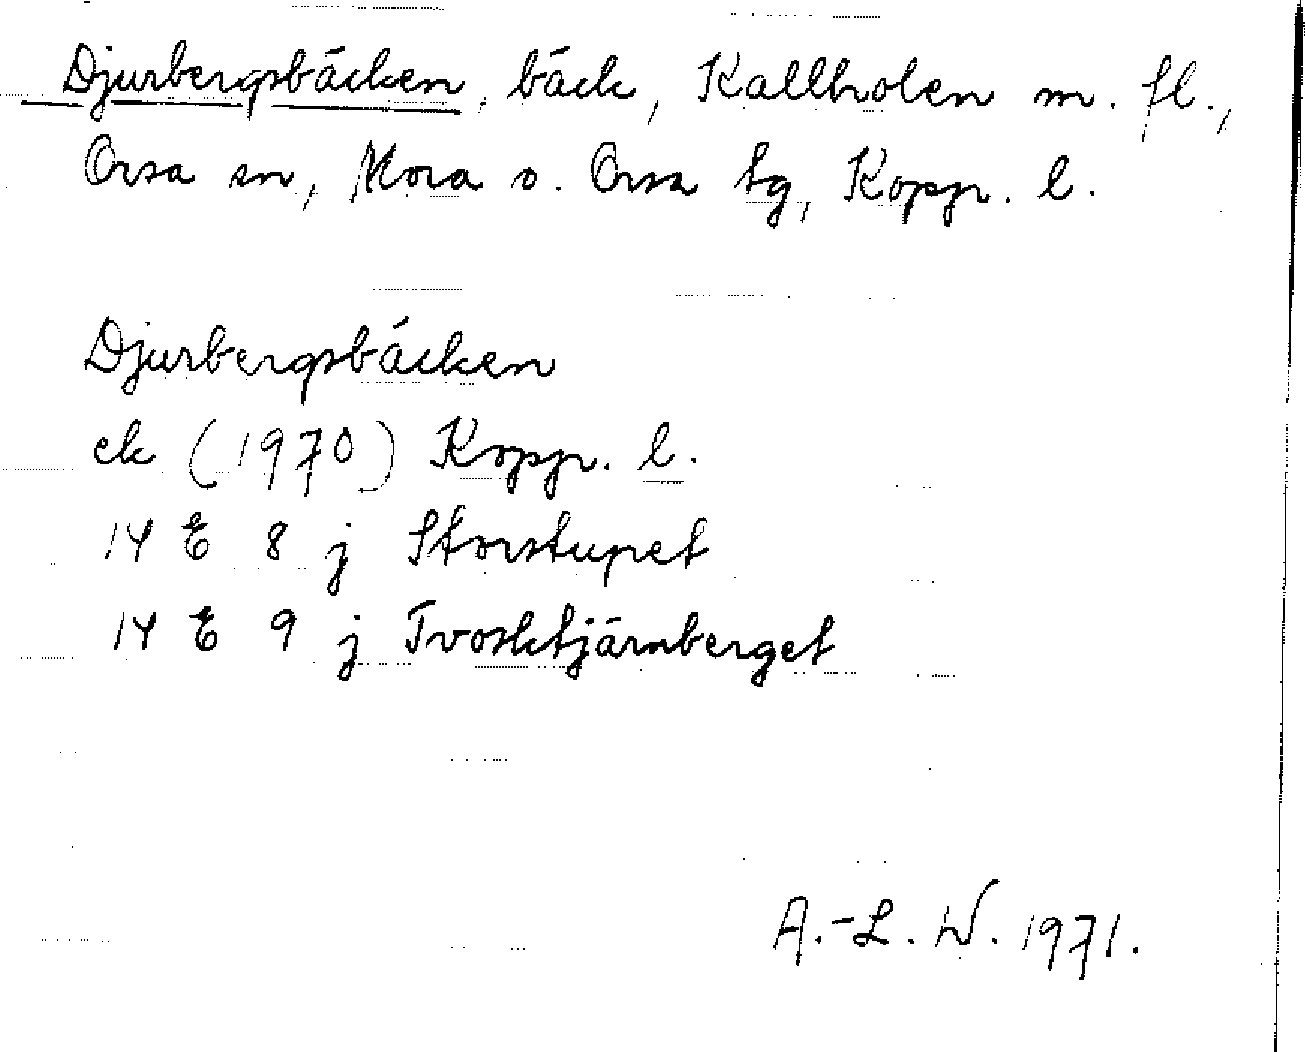 Djurbergsbäcken, bäck, Kallholen m. fl.,
Orsa sn, Mora o. Orsa tg, Kopp. l.
Djurbergsbäcken
ek (1970) Kopp. l.
14 E 8 j Storstupet
14 E 9 j Tvosktjärnberget
A.-L. W. 1971.